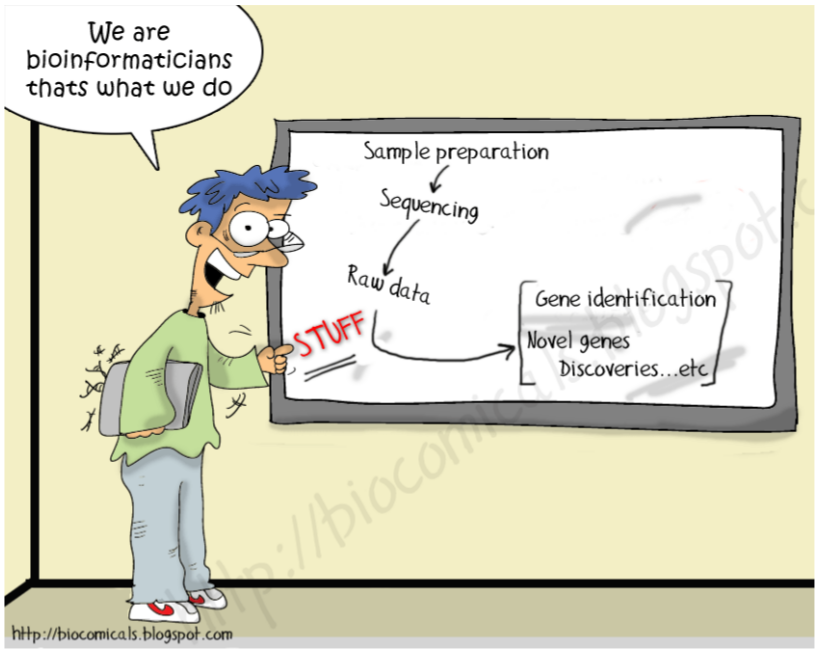 We are
bioinformaticians
thats what we do
Sample preparation
Sequencing
Raw data
STUFF
Gene identification
Novel genes
Discoveries...etc
http://biocomicals.blogspot.com
http://biocomicals.blogspot.c